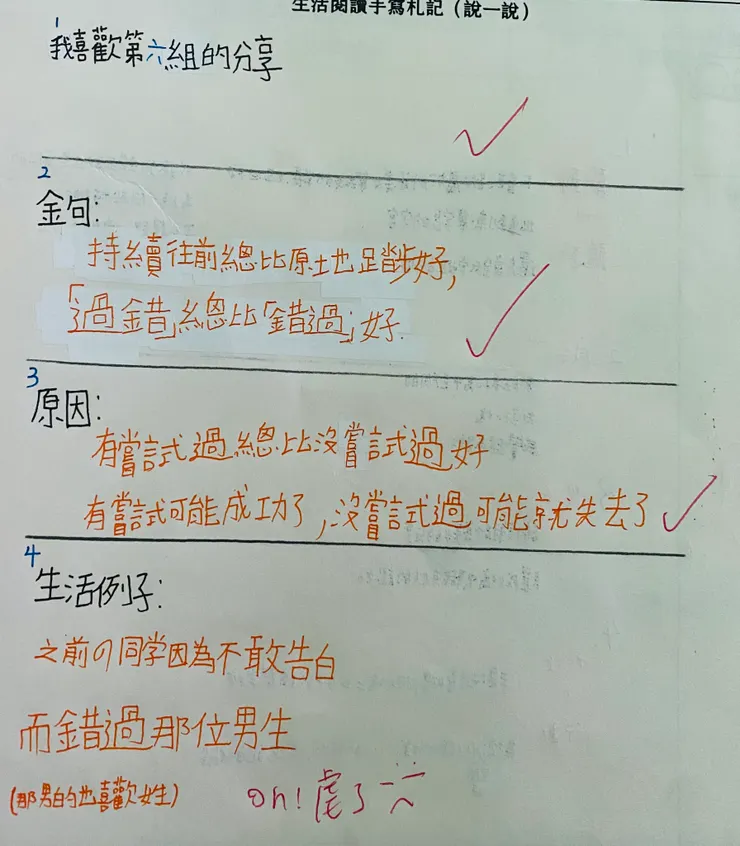 生活閱讀手寫札記（說一說）
1
我喜歡第六組的分享
2
金句：
持續往前總比原地踏步好，
「過錯」總比「錯過」好.
3
原因：
有嘗試過總比沒嘗試過好
有嘗試可能成功了，沒嘗試過可能就失去了
4
生活例子：
之前の同学因為不敢告白
而錯過那位男生
(那男的也喜歡女生)
oh! 虐了